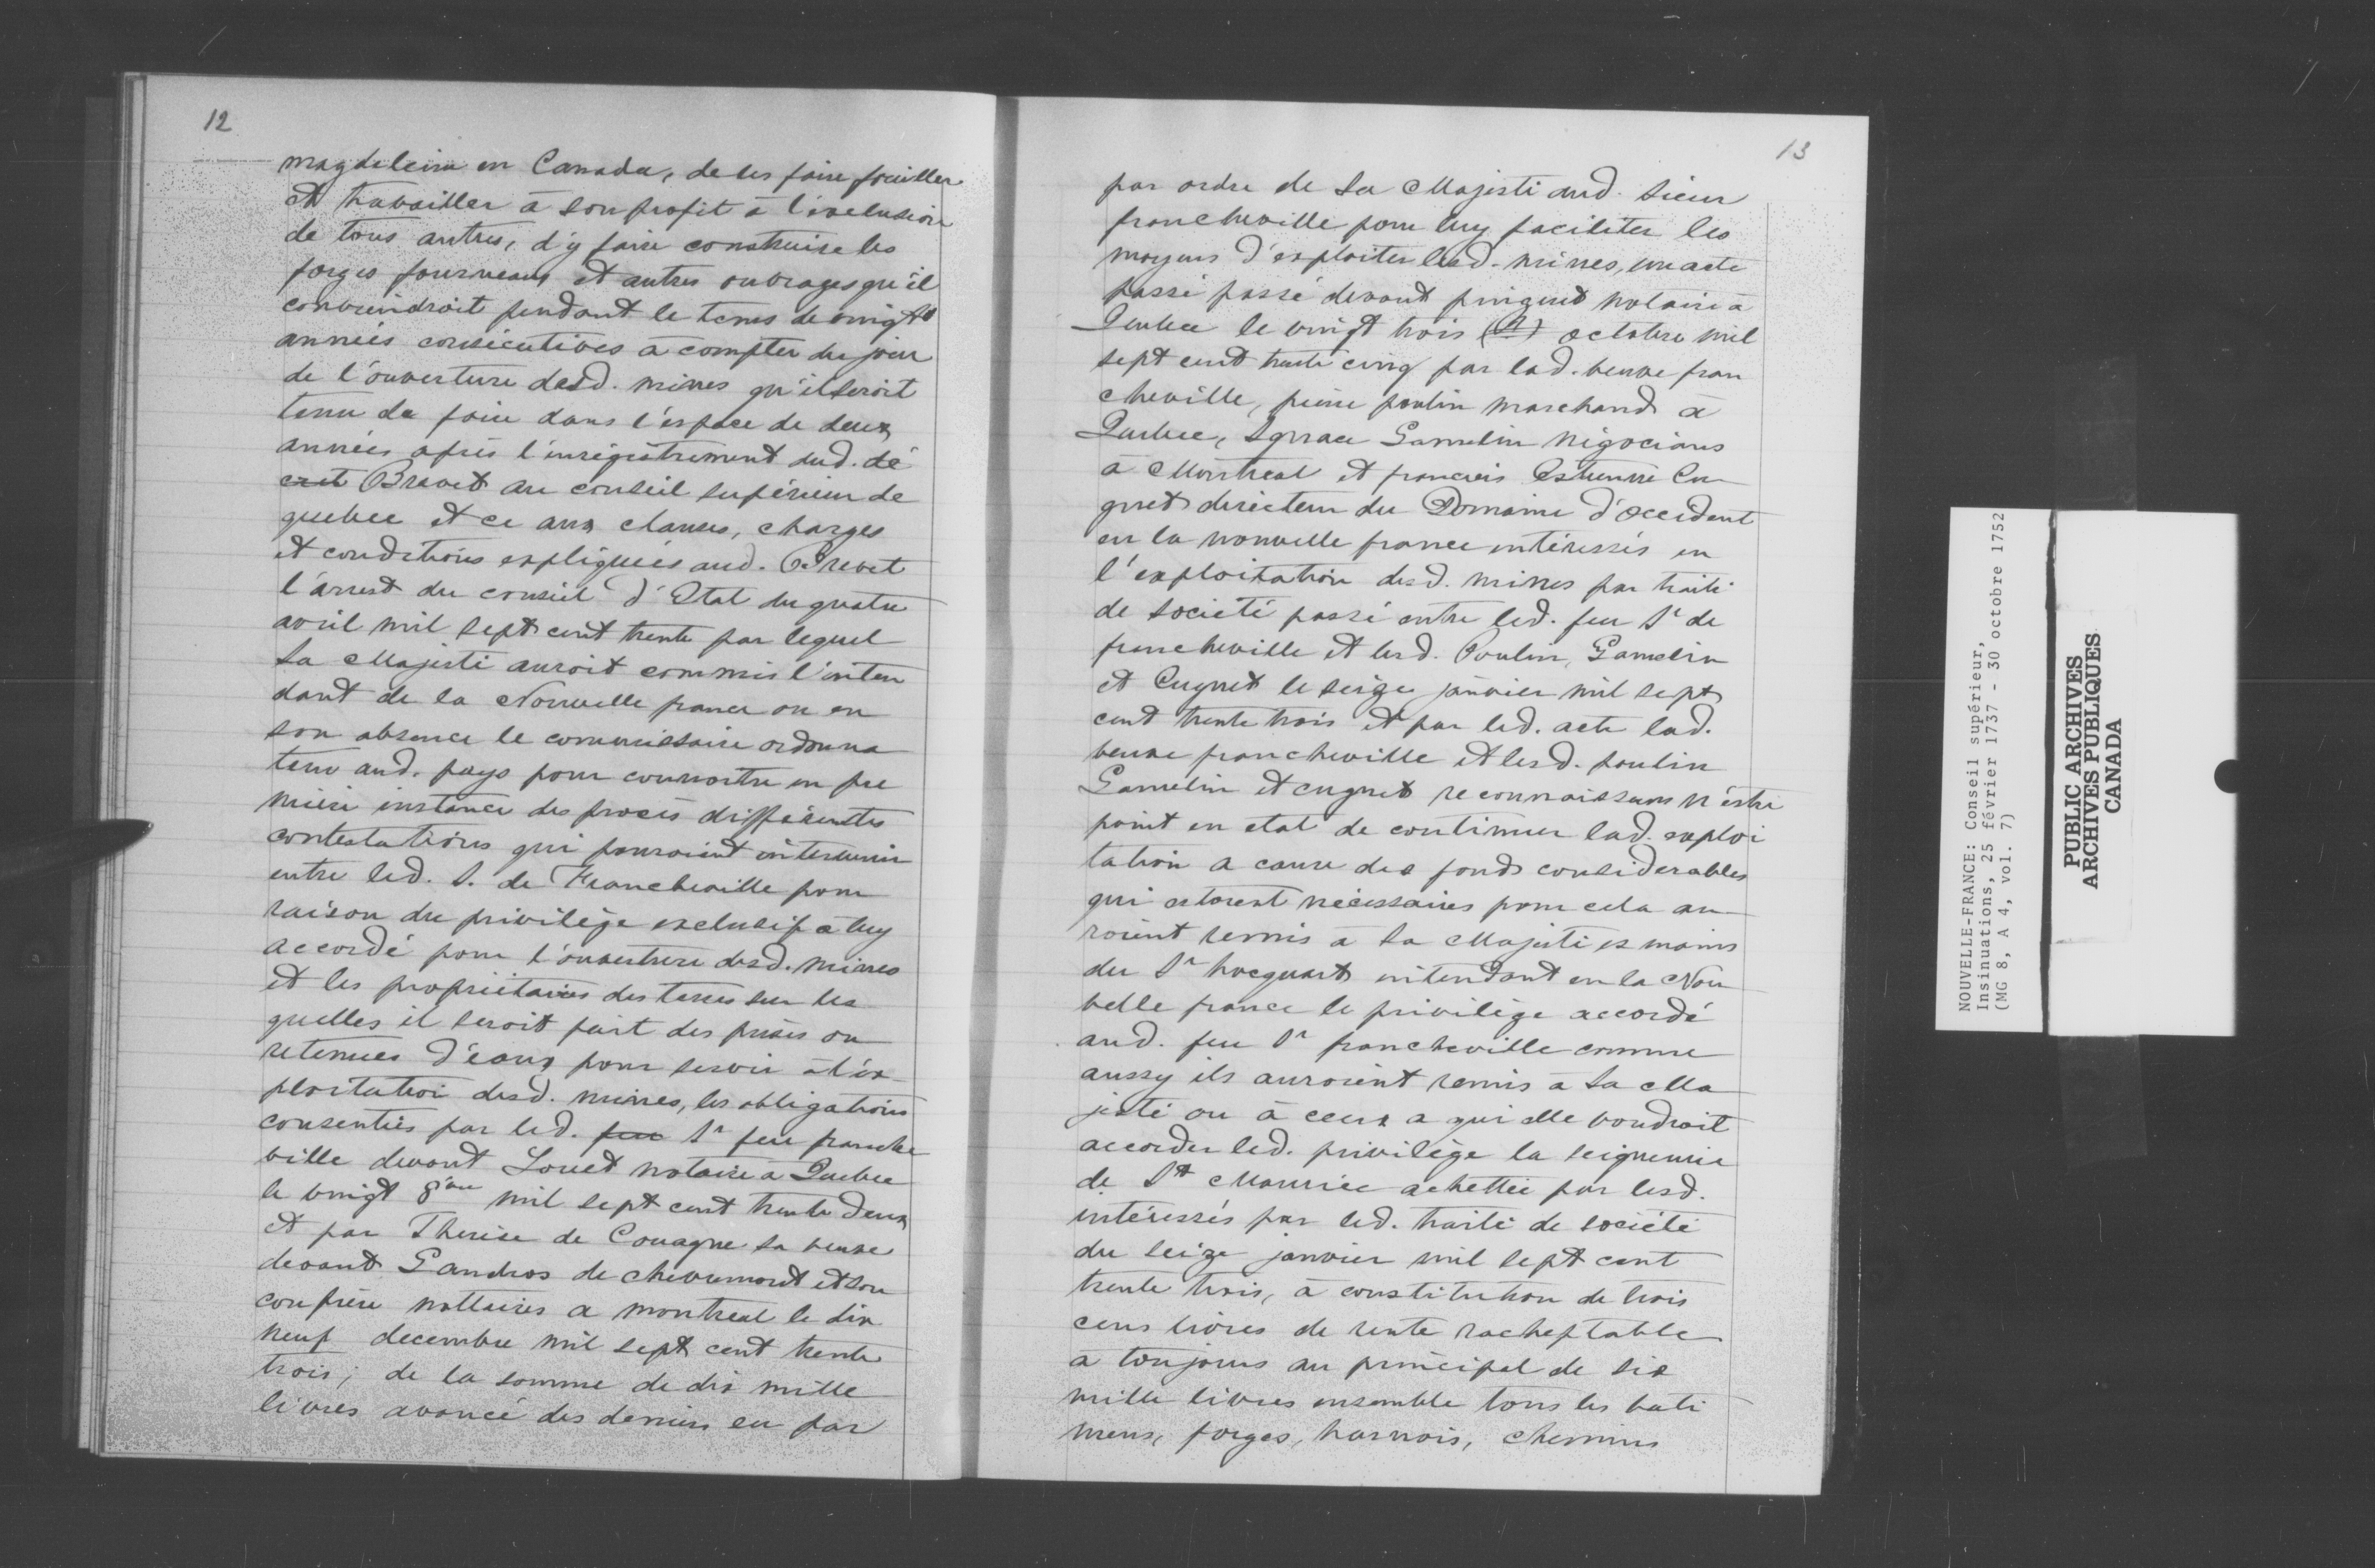 12
magdeleine en Canada, de les faire fouiller
et travailler à son profit à l'exclusion
de tous autres, d'y faire construire les
forges fourneaux et autres ouvrages qu'il
conviendroit pendant le tems de vingt
années consécutives à compter du jour
de l'ouverture desd. mines qu'il seroit
tenu de faire dans l'espace de deux
années après l'enregistrement dud. dé
cret Brevet au conseil supérieur de
quebec et ce aux clauses, charges
et conditions expliquées aud. Brevet
l'arrest du conseil d'Etat du quatre
avril mil sept cent trente par lequel
Sa Majesté auroit commis l'inten
dant de la Nouvelle france ou en
son absence le commissaire ordonna
teur aud. pays pour connoitre en pre
mière instance des procès différentes
contestations qui pouroient intervenir
entre led. S. de Francheville pour
raison du privilège exclusif à luy
accordé pour l'ouverture desd. mines
et les propriétaires des terres sur les
quelles il seroit fait des prises ou
retenues d'eaux pour servir à l'ex
ploitation desd. mines, les obligations
consenties par led. feu Sr feu franche
ville devant Louet notaire à Quebec
le vingt 8bre mil sept cent trente deux
et par Therese de Couagne sa veuve
devant Gaudros de chevremont et son
confrère nottaires a montreal le dix
neuf decembre mil sept cent trente
trois; de la somme de dix mille
livres avancé des deniers en par
13
par ordre de Sa Majesté aud. sieur
francheville pour luy faciliter les
moyens d'exploiter lesd. mines, un acte
passé passé devant pinguet notaire à
Quebec le vingt trois octobre mil
sept cent trente cinq par lad. veuve fran
cheville, pierre poulin marchand à
Quebec, Ignace Gamelin négocians
à Montreal et francois Estienne Cu
gnet directeur du Domaine d'occident
en la nouvelle france intéressés en
l'exploitation desd. mines par traité
de société passé entre led. feu Sr de
francheville et lesd. Poulin, Gamelin
et Cugnet le seize janvier mil sept
cent trente trois et par led. acte lad.
veuve francheville et lesd. poulin
Gamelin et cugnet reconnaissans n'estre
point en etat de continuer lad. exploi
tation a cause des fonds considerables
qui estoient nécessaires pour cela au
roient remis à Sa Majesté es mains
du Sr hocquart intendant en la Nou
velle france le privilège accordé
aud. feu Sr francheville comme
aussy ils auroient remis à Sa Ma
jesté ou à ceux a qui elle voudroit
accorder led. privilège la seigneurie
de St Maurice achettée par lesd.
intéressés par led. traité de société
du seize janvier mil sept cent
trente trois, à constitution de trois
cens livres de rente racheptable
a toujours au principal de six
mille livres ensemble tous les bati
mens, forges, harnois, chemins
NOUVELLE-FRANCE: Conseil supérieur,
Insinuations, 25 février 1737 - 30 octobre 1752
(MG 8, A 4, vol. 7)
PUBLIC ARCHIVES
ARCHIVES PUBLIQUES
CANADA